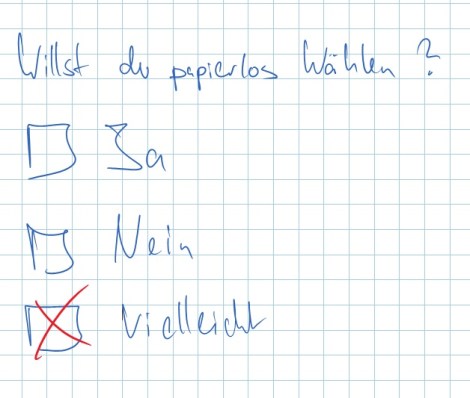 Willst du papierlos Wählen?
Ja
Nein
Vielleicht